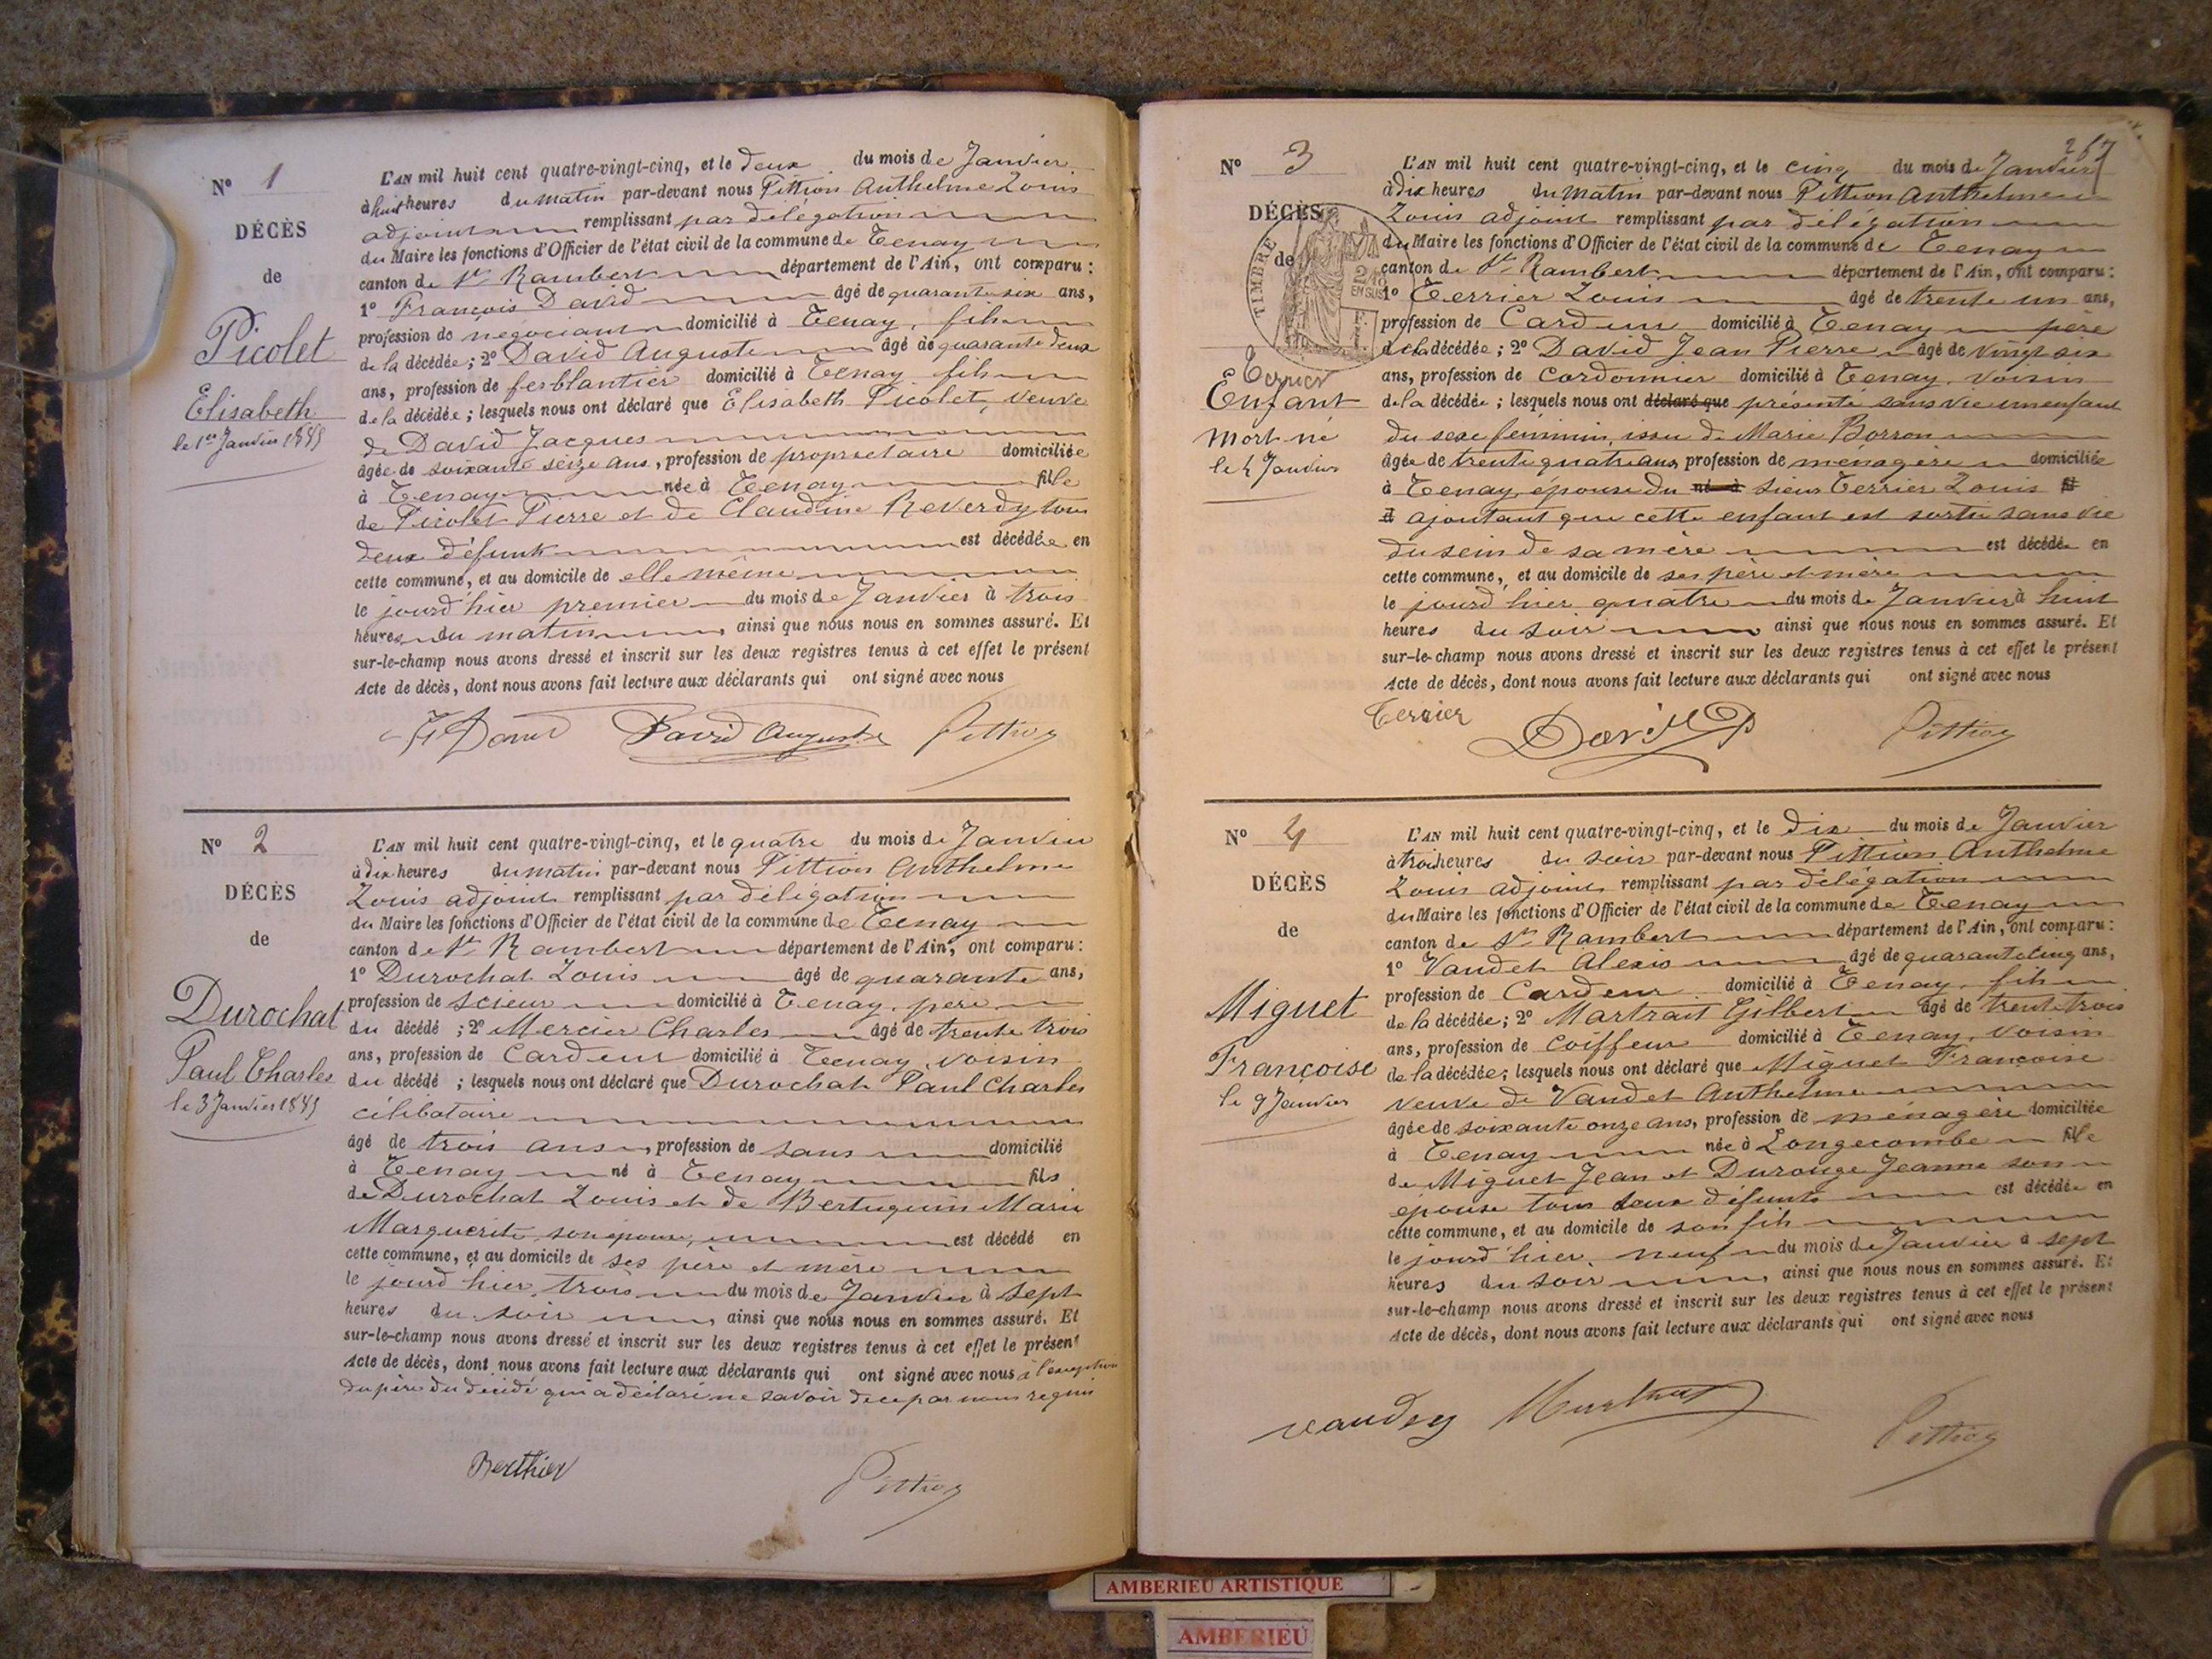 N° 1
DÉCÈS
de
Picolet
Elisabeth
le 1er Janvier 1885
L'AN mil huit cent quatre-vingt-cinq, et le deux du mois de Janvier
à huit heures du matin par-devant nous Pittion Anthelme Louis
adjoint remplissant par délégation
du Maire les fonctions d'Officier de l'état civil de la commune de Tenay
canton de St Rambert département de l'Ain, ont comparu :
1° François David âgé de quarante six ans,
profession de négociant domicilié à Tenay, fils
de la décédée ; 2° David Auguste âgé de quarante deux
ans, profession de ferblantier domicilié à Tenay fils
de la décédée ; lesquels nous ont déclaré que Elisabeth Picolet, veuve
de David Jacques
âgée de soixante seize ans, profession de propriétaire domiciliée
à Tenay née à Tenay fille
de Picolet Pierre et de Claudine Reverdy tous
deux défunts est décédée en
cette commune, et au domicile de elle même
le jourd'hier premier du mois de Janvier à trois
heures du matin, ainsi que nous nous en sommes assuré. Et
sur-le-champ nous avons dressé et inscrit sur les deux registres tenus à cet effet le présent
Acte de décès, dont nous avons fait lecture aux déclarants qui ont signé avec nous
F David David Auguste Pittion
N° 2
DÉCÈS
de
Durochat
Paul Charles
le 3 Janvier 1885
L'AN mil huit cent quatre-vingt-cinq, et le quatre du mois de Janvier
à dix heures du matin par-devant nous Pittion Anthelme
Louis adjoint remplissant par délégation
du Maire les fonctions d'Officier de l'état civil de la commune de Tenay
canton de St Rambert département de l'Ain, ont comparu :
1° Durochat Louis âgé de quarante ans,
profession de scieur domicilié à Tenay, père
du décédé ; 2° Mercier Charles âgé de trente trois
ans, profession de Cardeur domicilié à Tenay, voisin
du décédé ; lesquels nous ont déclaré que Durochat Paul Charles
célibataire
âgé de trois ans, profession de sans domicilié
à Tenay né à Tenay fils
de Durochat Louis et de Bertuguin Marie
Marguerite, son épouse, est décédé en
cette commune, et au domicile de ses père et mère
le jourd'hier, trois du mois de Janvier à sept
heures du soir, ainsi que nous nous en sommes assuré. Et
sur-le-champ nous avons dressé et inscrit sur les deux registres tenus à cet effet le présent
Acte de décès, dont nous avons fait lecture aux déclarants qui ont signé avec nous à l'exception
du père du décédé qui a déclaré ne savoir de ce par nous requis
Pittion
267
N° 3
DÉCÈS
de
TIMBRE
2/10
EN SUS
Terrier
Enfant
Mort né
le 4 Janvier
L'AN mil huit cent quatre-vingt-cinq, et le cinq du mois de Janvier
à dix heures du matin par-devant nous Pittion Anthelme
Louis adjoint remplissant par délégation
du Maire les fonctions d'Officier de l'état civil de la commune de Tenay
canton de St Rambert département de l'Ain, ont comparu :
1° Terrier Louis âgé de trente un ans,
profession de Cardeur domicilié à Tenay père
de la décédée ; 2° David Jean Pierre âgé de vingt six
ans, profession de Cordonnier domicilié à Tenay, voisin
de la décédée ; lesquels nous ont déclaré que présenté sans vie un enfant
du sexe féminin, issu de Marie Borron
âgée de trente quatre ans profession de ménagère domiciliée
à Tenay, épouse du né à sieur Terrier Louis fil
d ajoutant que cette enfant est sortie sans vie
du sein de sa mère est décédée en
cette commune, et au domicile de ses père et mère
le jourd'hier quatre du mois de Janvier à huit
heures du soir, ainsi que nous nous en sommes assuré. Et
sur-le-champ nous avons dressé et inscrit sur les deux registres tenus à cet effet le présent
Acte de décès, dont nous avons fait lecture aux déclarants qui ont signé avec nous
Terrier David JP Pittion
N° 4
DÉCÈS
de
Miguet
Françoise
le 9 Janvier
L'AN mil huit cent quatre-vingt-cinq, et le dix du mois de Janvier
à trois heures du soir par-devant nous Pittion Anthelme
Louis adjoint remplissant par délégation
du Maire les fonctions d'Officier de l'état civil de la commune de Tenay
canton de St Rambert département de l'Ain, ont comparu :
1° Vaudet Alexis âgé de quarante cinq ans,
profession de Cardeur domicilié à Tenay, fils
de la décédée ; 2° Martrait Gilbert âgé de trente trois
ans, profession de Coiffeur domicilié à Tenay, voisin
de la décédée ; lesquels nous ont déclaré que Miguet Françoise
veuve de Vaudet Anthelme
âgée de soixante onze ans, profession de ménagère domiciliée
à Tenay née à Longecombe fille
de Miguet Jean et Durouge Jeanne son
épouse tous deux défunts est décédée en
cette commune, et au domicile de son fils
le jourd'hier, neuf du mois de Janvier à sept
heures du soir, ainsi que nous nous en sommes assuré. Et
sur-le-champ nous avons dressé et inscrit sur les deux registres tenus à cet effet le présent
Acte de décès, dont nous avons fait lecture aux déclarants qui ont signé avec nous
Pittion
AMBERIEU ARTISTIQUE
AMBERIEU